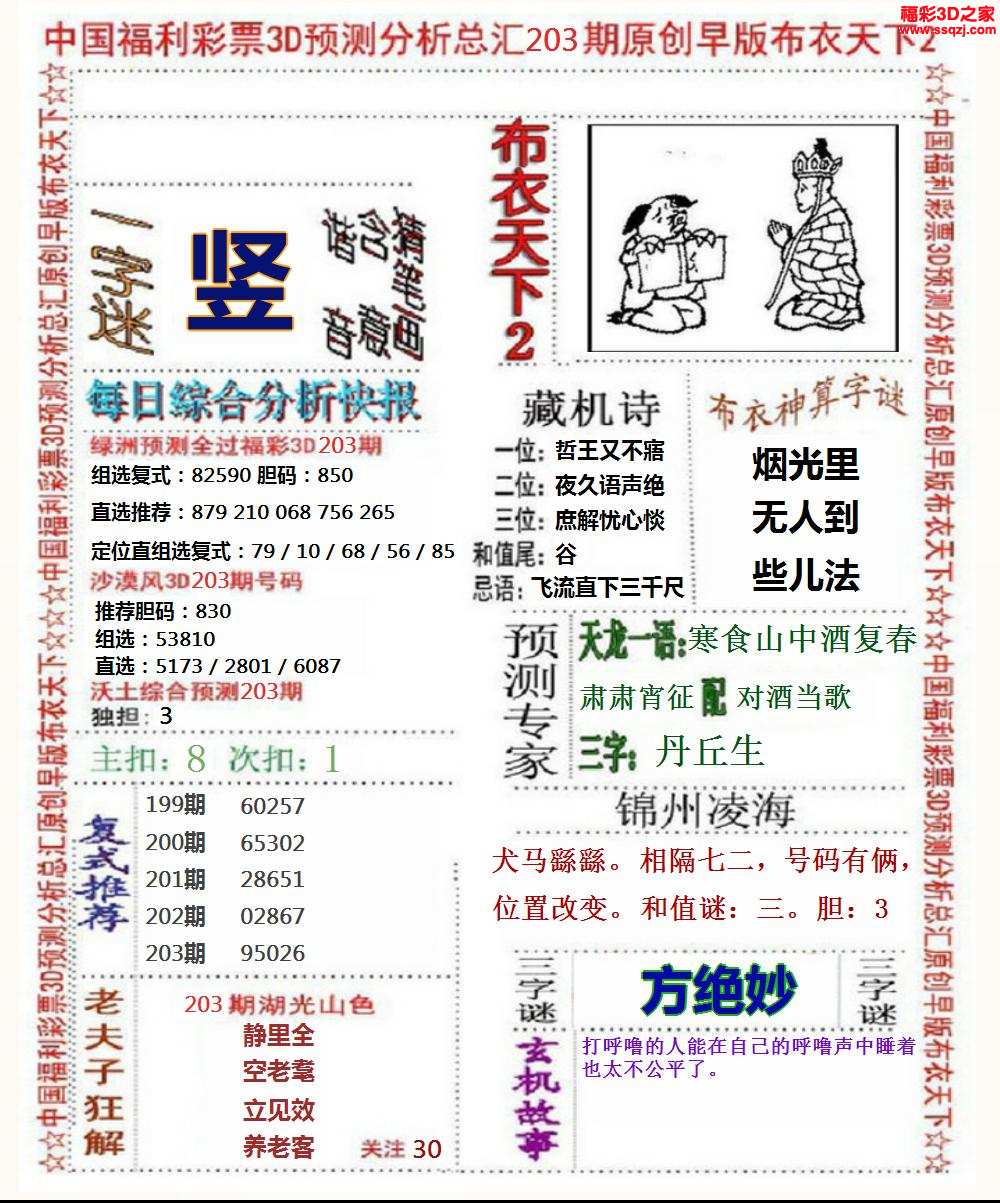 福彩3D之家
www.ssqzj.com
中国福利彩票3D预测分析总汇203期原创早版布衣天下2
☆☆中国福利彩票3D预测分析总汇原创早版布衣天下☆☆☆中国福利彩票3D预测分析总汇原创早版布衣天下☆☆
一字迷
竖
猜笔画
含意
谐音
布衣天下2
每日综合分析快报
绿洲预测全过福彩3D203期
组选复式：82590 胆码：850
直选推荐：879 210 068 756 265
定位直组选复式：79 / 10 / 68 / 56 / 85
沙漠风3D203期号码
推荐胆码：830
组选：53810
直选：5173 / 2801 / 6087
沃土综合预测203期
独担：3
主扣：8 次扣：1
复式推荐
199期 60257
200期 65302
201期 28651
202期 02867
203期 95026
老夫子狂解
203期湖光山色
静里全
空老耄
立见效
养老客
关注 30
藏机诗
一位：哲王又不寤
二位：夜久语声绝
三位：庶解忧心惔
和值尾：谷
忌语：飞流直下三千尺
布衣神算字谜
烟光里
无人到
些儿法
预测专家
天龙一语：寒食山中酒复春
肃肃宵征 配 对酒当歌
三字：丹丘生
锦州凌海
犬马繇繇。相隔七二，号码有俩，
位置改变。和值谜：三。胆：3
三字谜
方绝妙
三字谜
玄机故事
打呼噜的人能在自己的呼噜声中睡着
也太不公平了。
☆☆中国福利彩票3D预测分析总汇原创早版布衣天下☆☆☆中国福利彩票3D预测分析总汇原创早版布衣天下☆☆